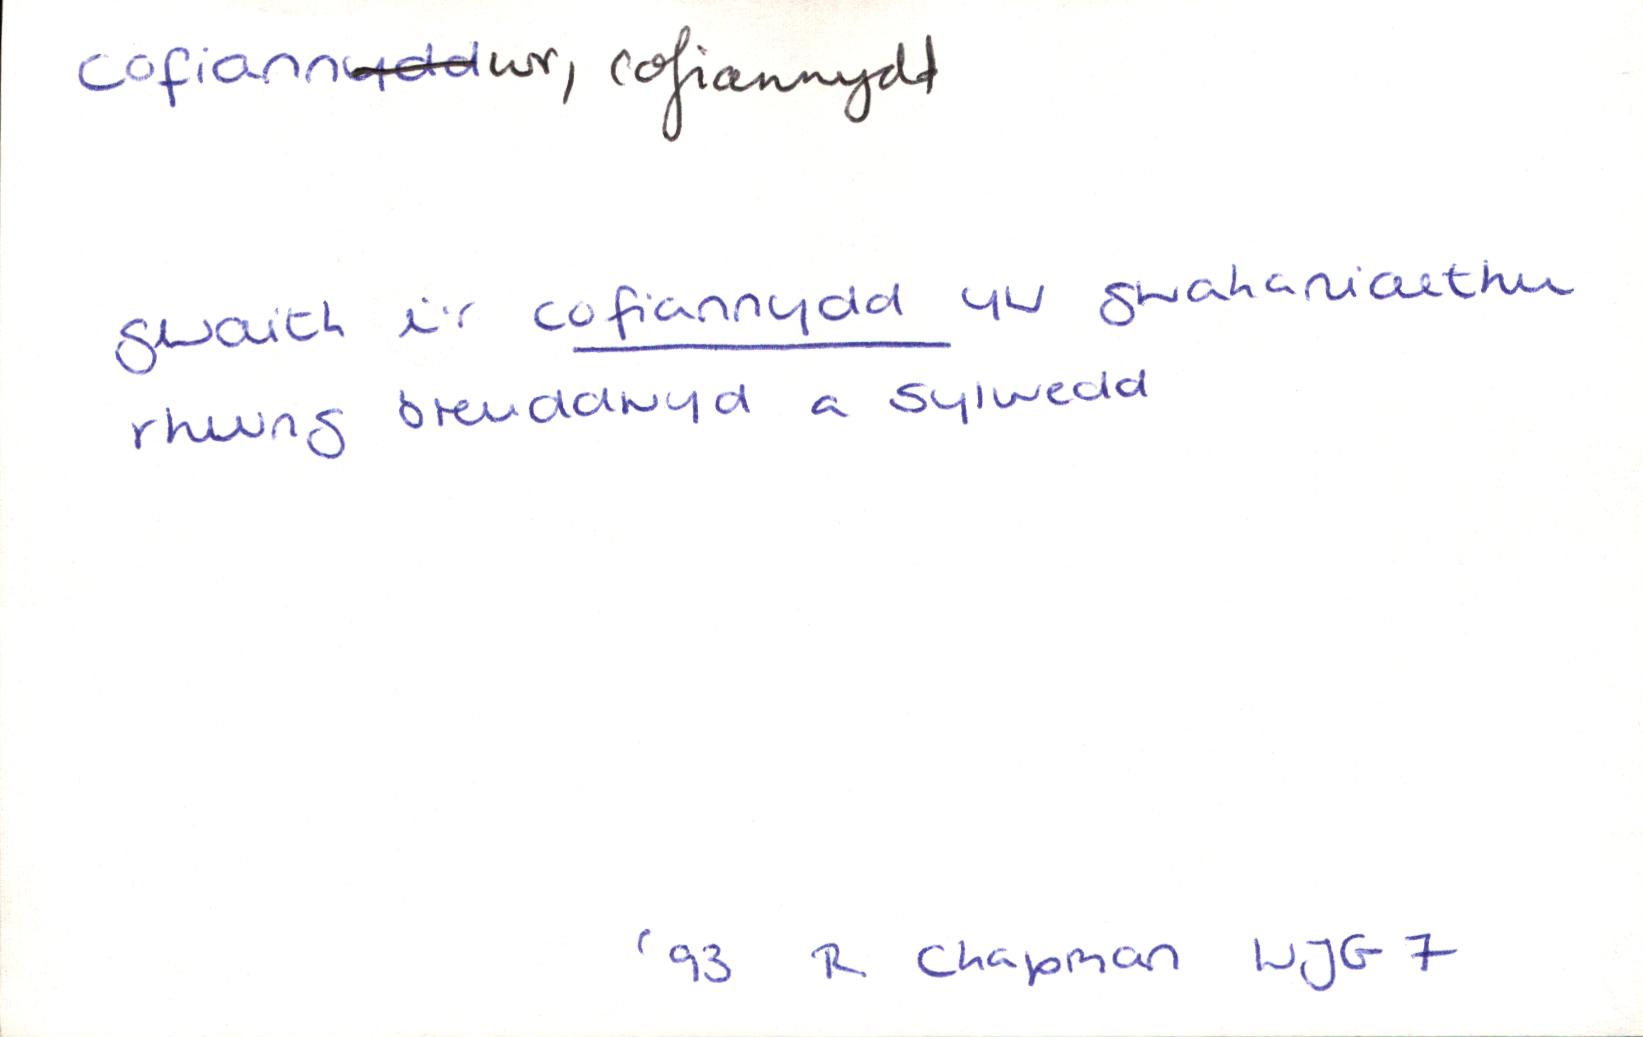 cofiannwr, cofiannydd
gwaith i'r cofiannydd yw gwahaniaethu
rhwng breuddwyd a sylwedd
'93 R Chapman WJG 7